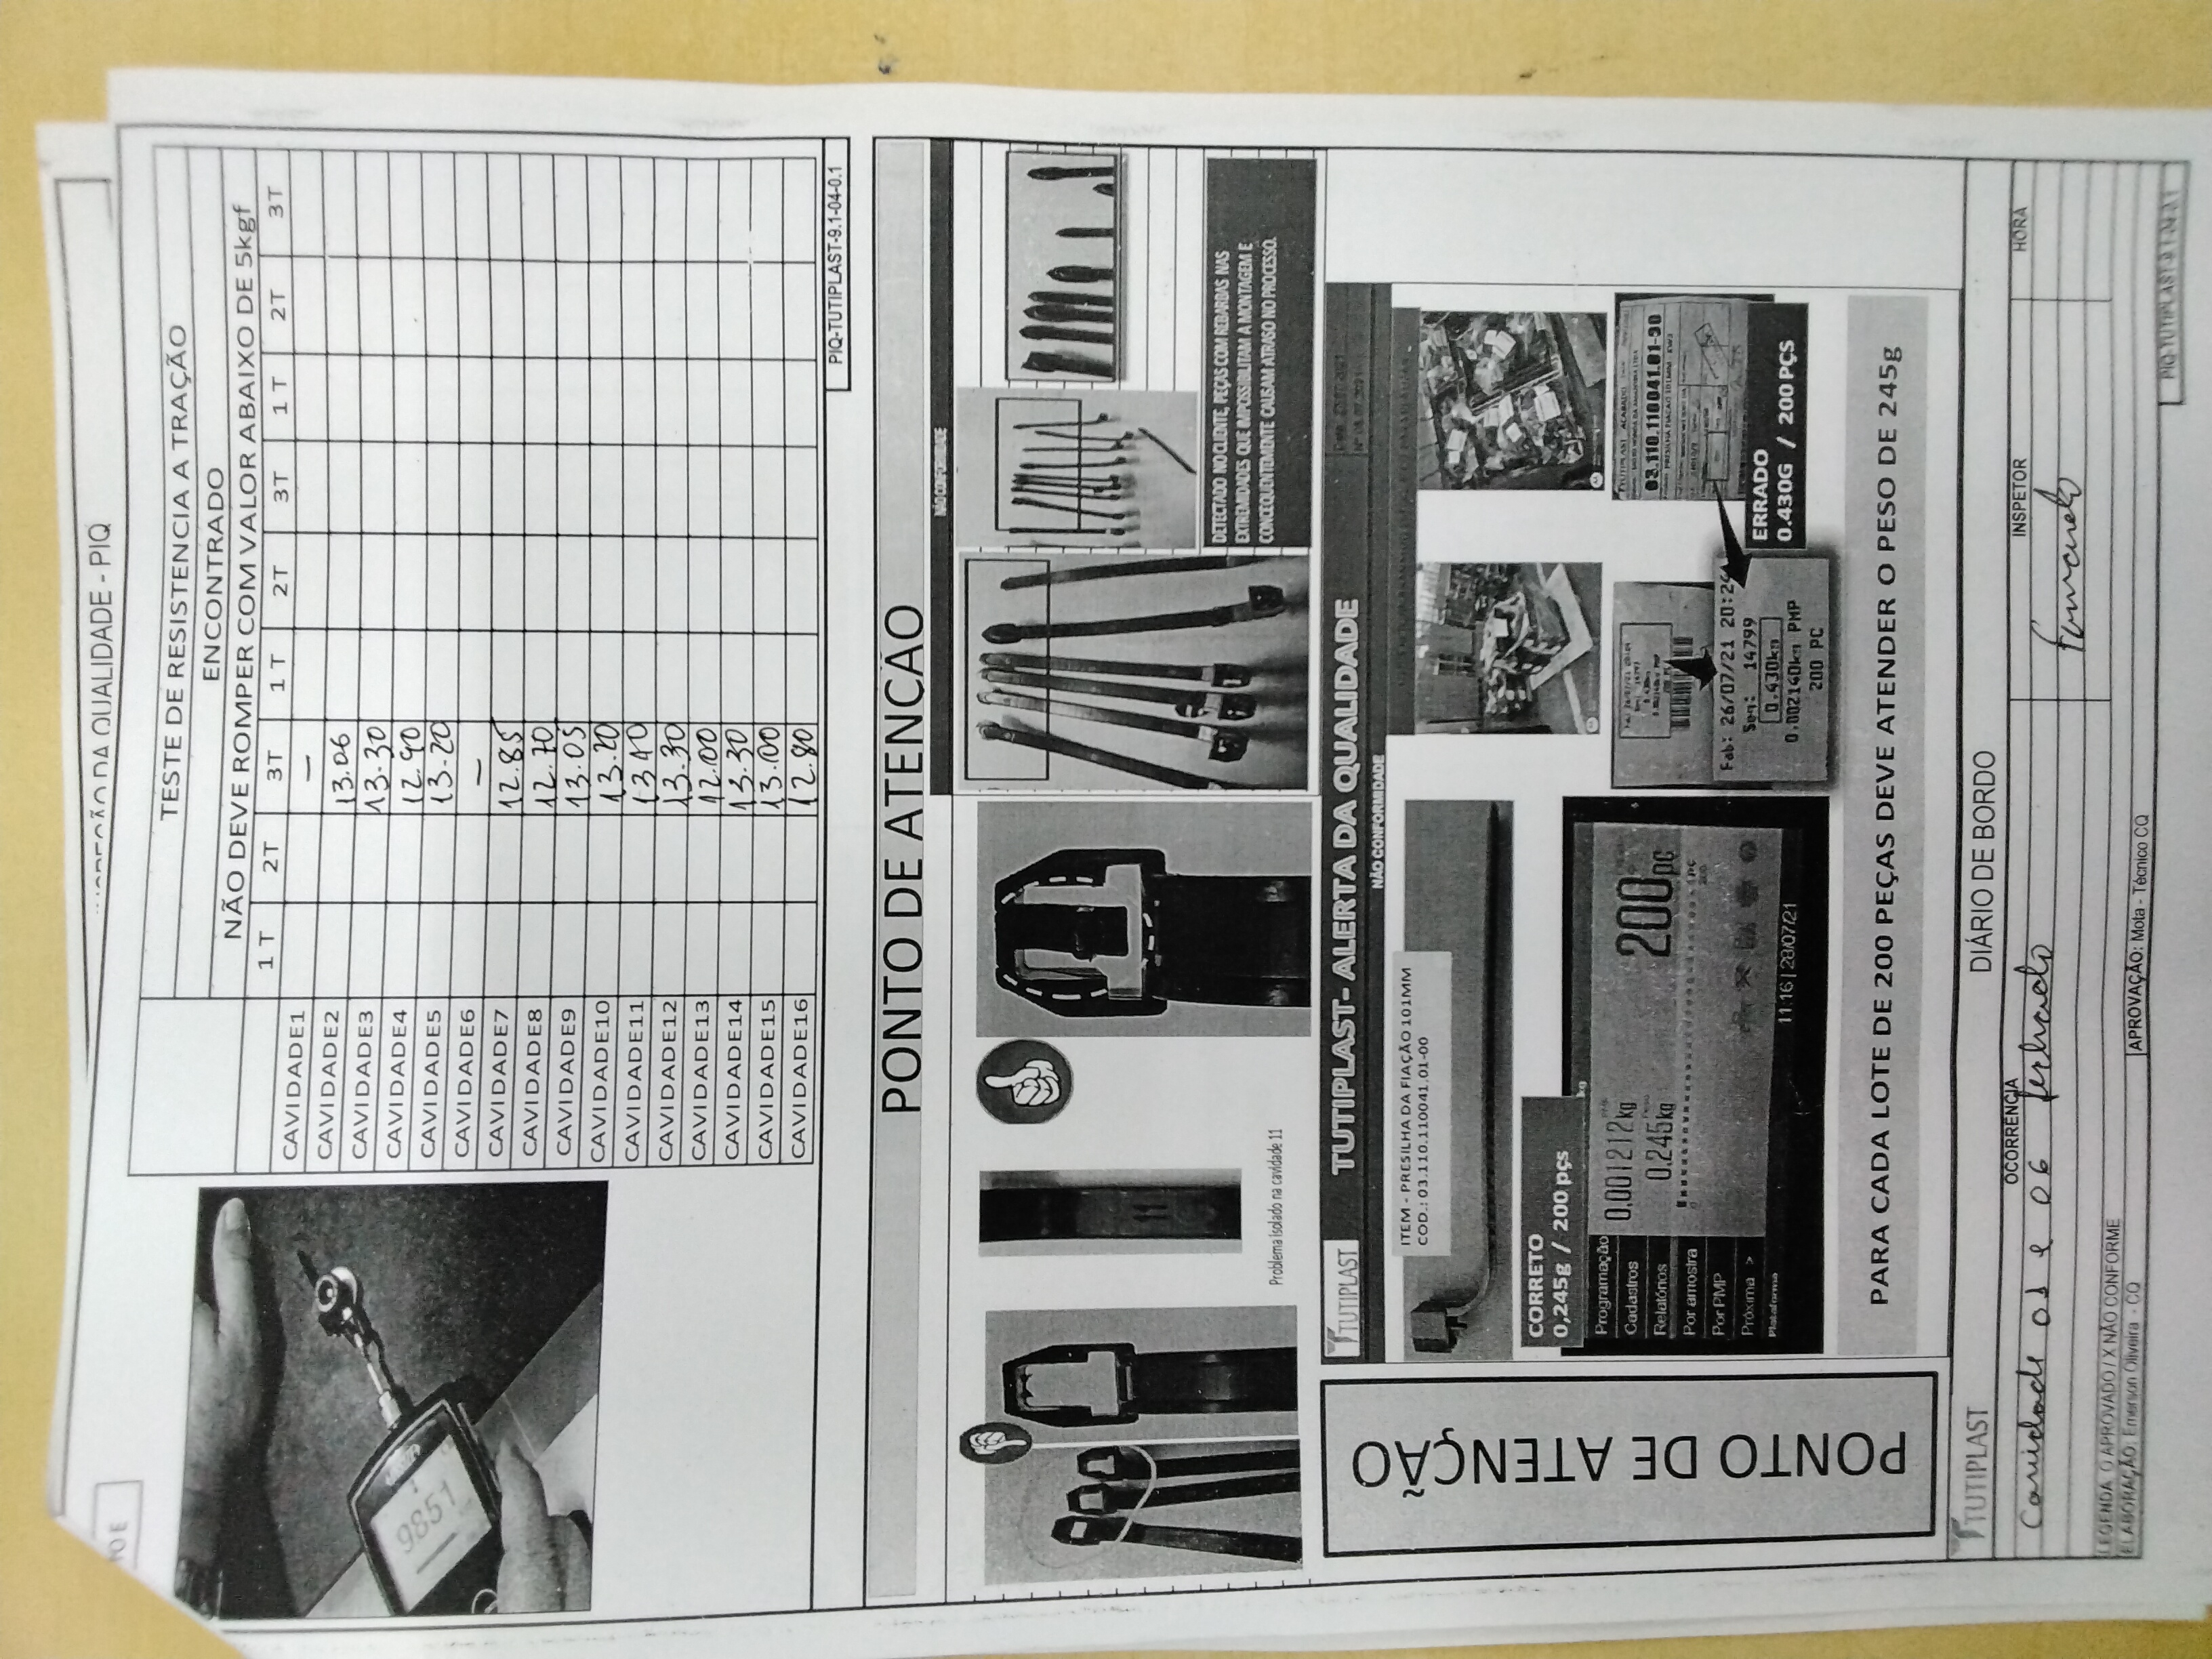 INSPEÇÃO NA QUALIDADE - PIQ
TESTE DE RESISTENCIA A TRAÇÃO
ENCONTRADO
NÃO DEVE ROMPER COM VALOR ABAIXO DE 5kgf
1T 2T 3T 1T 2T 3T 1T 2T 3T
CAVIDADE1 –
CAVIDADE2 13.06
CAVIDADE3 13.30
CAVIDADE4 12.90
CAVIDADE5 13.20
CAVIDADE6 –
CAVIDADE7 12.85
CAVIDADE8 12.70
CAVIDADE9 13.05
CAVIDADE10 13.20
CAVIDADE11 13.40
CAVIDADE12 13.30
CAVIDADE13 12.00
CAVIDADE14 13.30
CAVIDADE15 13.00
CAVIDADE16 12.80
9851
PIQ-TUTIPLAST-9.1-04-0.1
PONTO DE ATENÇÃO
NÃO CONFORMIDADE
11
Problema isolado na cavidade 11
DETECTADO NO CLIENTE, PEÇAS COM REBARBAS NAS
EXTREMIDADES QUE IMPOSSIBILITAM A MONTAGEM E
CONCEQUENTEMENTE CAUSAM ATRASO NO PROCESSO.
PONTO DE ATENÇÃO
TUTIPLAST
TUTIPLAST- ALERTA DA QUALIDADE
NÃO CONFORMIDADE
ITEM - PRESILHA DA FIAÇÃO 101MM
COD.: 03.110.110041.01-00
CORRETO
0,245g / 200 pçs
Programação
Cadastros
Relatórios
Por amostra
Por PMP
Próxima >
Plataforma
0,001212kg
0.245kg
200pc
11:16 | 28/07/21
Fab: 26/07/21 20:24
Seq: 14799
0,430kg
0,002140kg PMP
200 PC
03.110.110041.01-90
ERRADO
0.430G / 200 PÇS
PARA CADA LOTE DE 200 PEÇAS DEVE ATENDER O PESO DE 245g
TUTIPLAST
DIÁRIO DE BORDO
OCORRÊNCIA INSPETOR HORA
Cavidade 01 e 06 fechado Fernando
LEGENDA O APROVADO / X NÃO CONFORME
ELABORAÇÃO: Emerson Oliveira - CQ
APROVAÇÃO: Mota - Técnico CQ
PIQ-TUTIPLAST-9.1-04-0.1